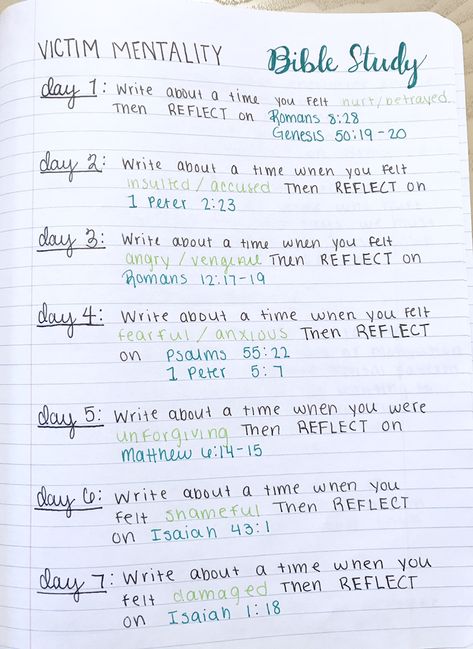 VICTIM MENTALITY Bible Study
day 1: Write about a time you felt hurt/betrayed
Then REFLECT on Romans 8:28
Genesis 50:19-20
day 2: Write about a time when you felt
insulted/accused Then REFLECT on
1 Peter 2:23
day 3: Write about a time when you felt
angry/vengeful Then REFLECT on
Romans 12:17-19
day 4: Write about a time when you felt
fearful/anxious Then REFLECT
on Psalms 55:22
1 Peter 5:7
day 5: Write about a time when you were
unforgiving Then REFLECT on
Matthew 6:14-15
day 6: Write about a time when you
felt shameful Then REFLECT
on Isaiah 43:1
day 7: Write about a time when you
felt damaged Then REFLECT
on Isaiah 1:18